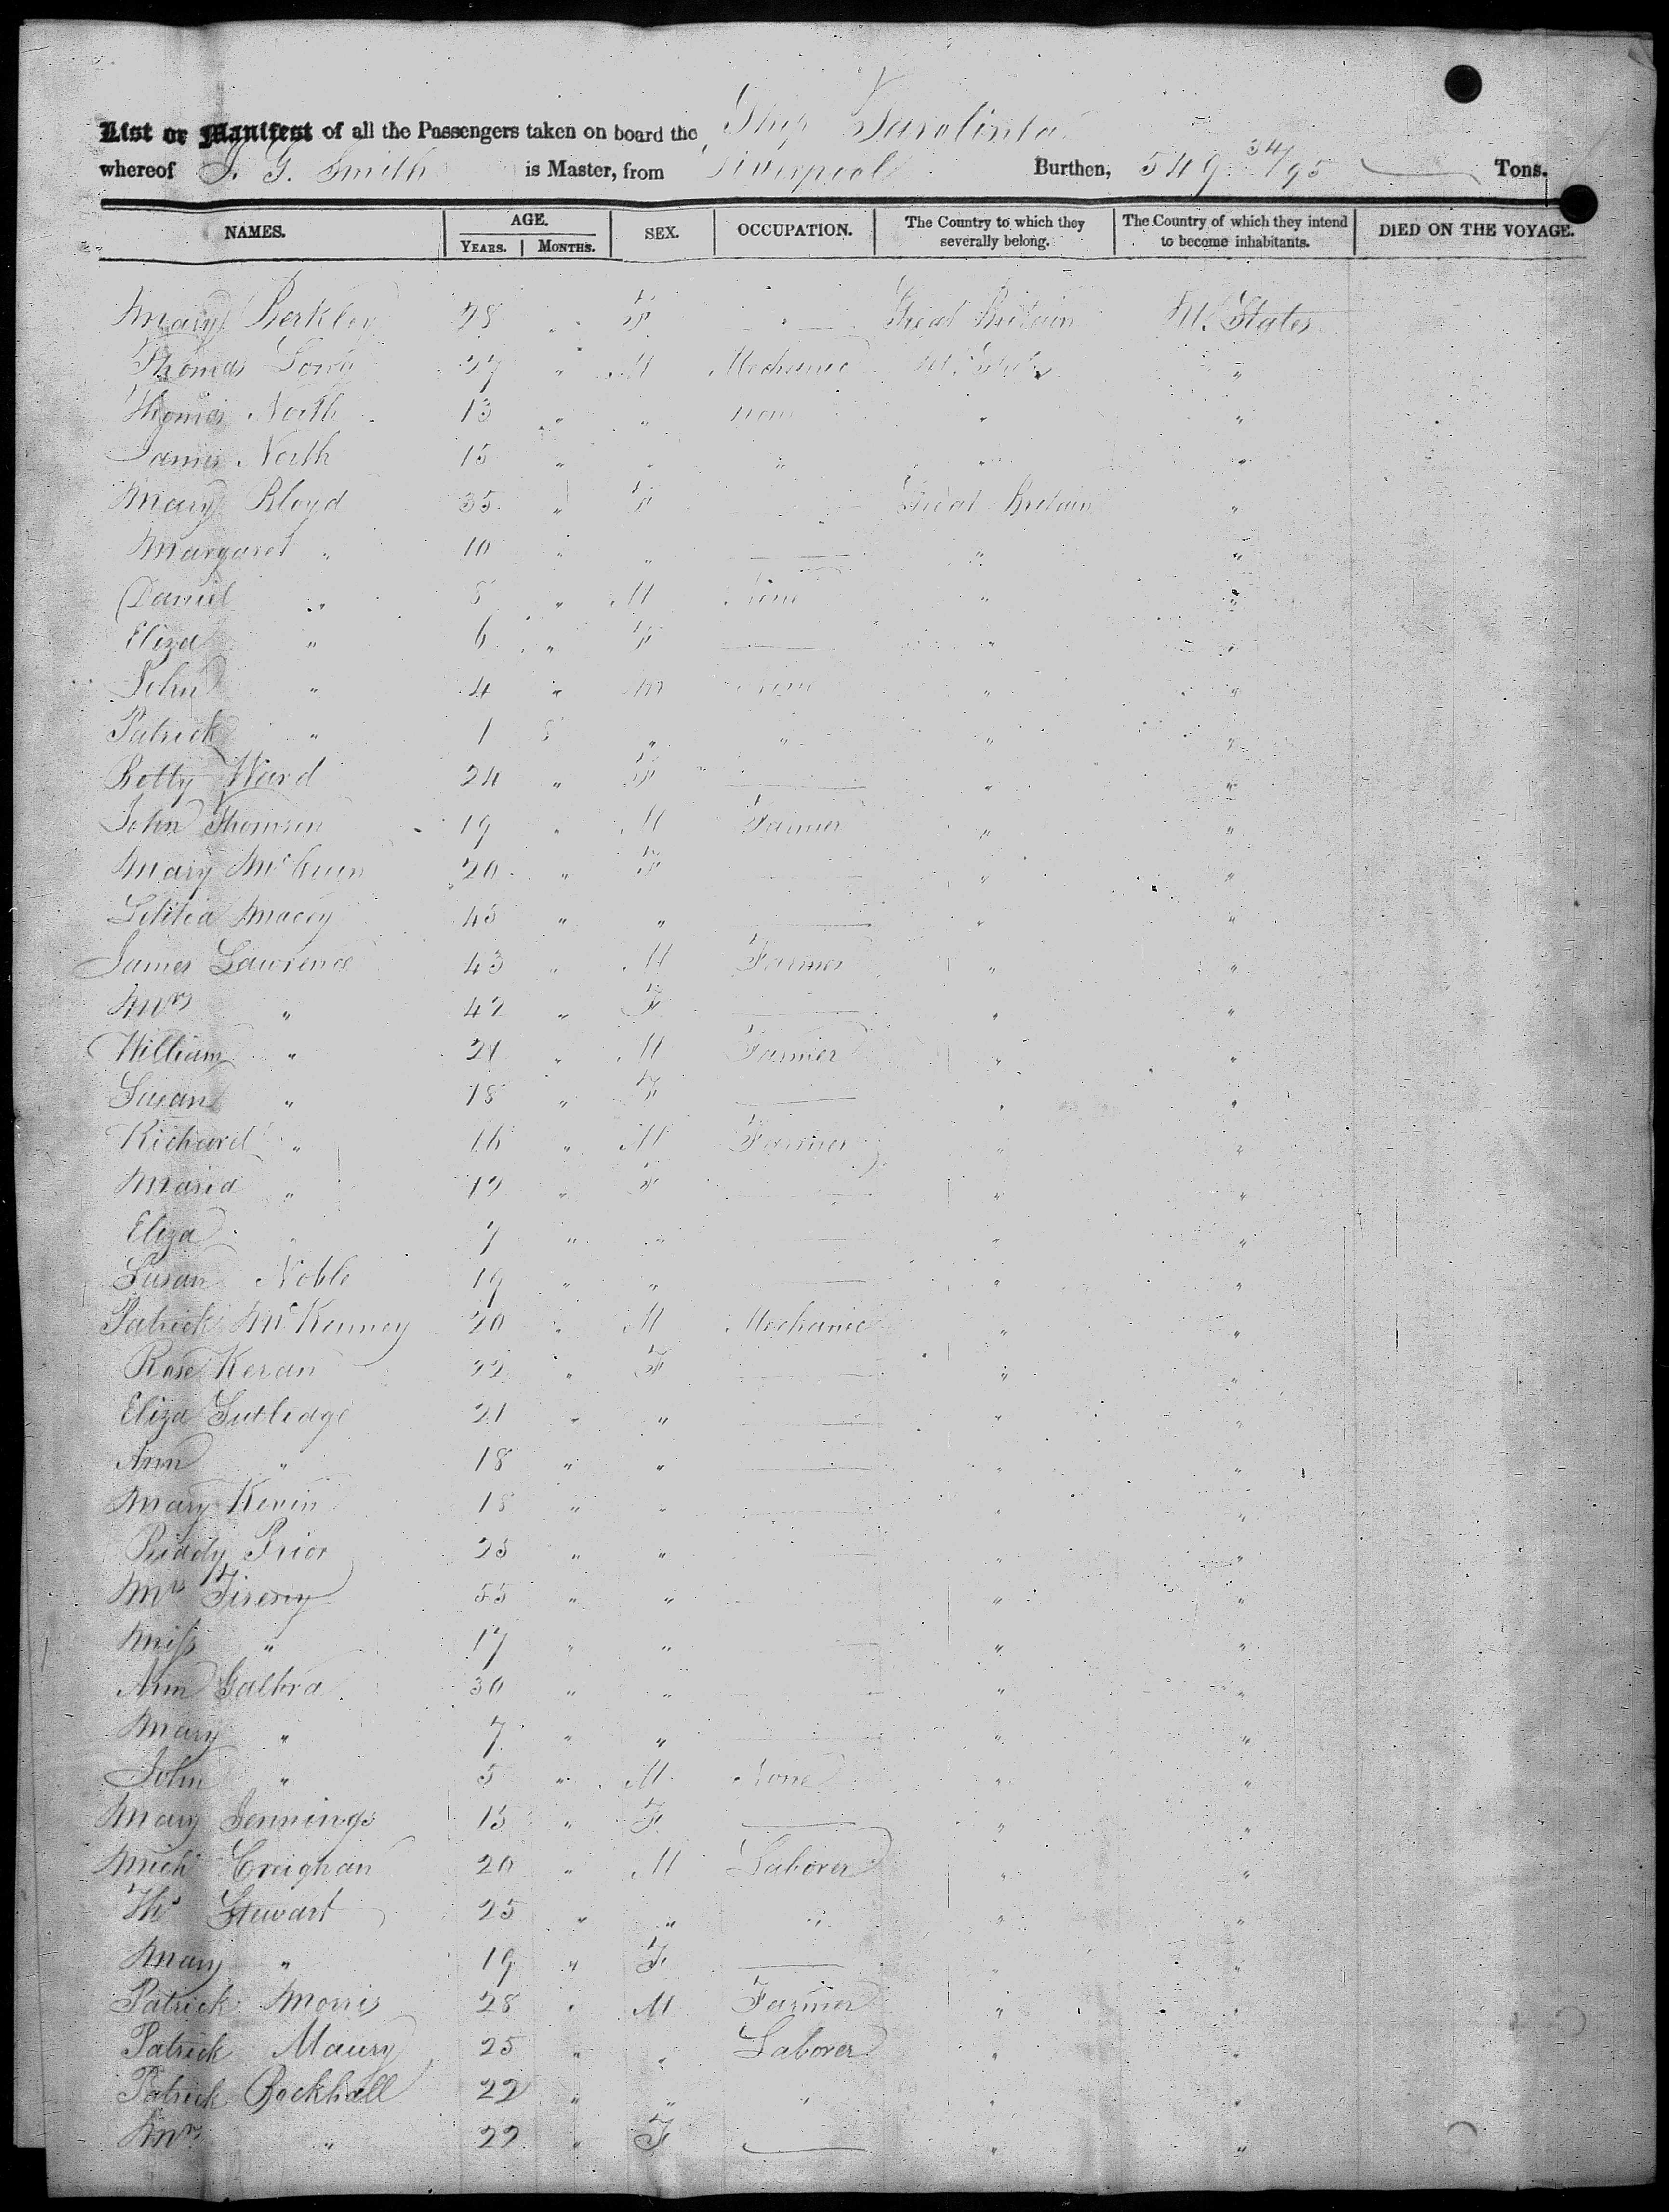 List or Manifest of all the Passengers taken on board the Ship Tarolinta
whereof J. G. Smith is Master, from Liverpool Burthen, 549 34/95 Tons.
NAMES. AGE. SEX. OCCUPATION. The Country to which they severally belong. The Country of which they intend to become inhabitants. DIED ON THE VOYAGE.
YEARS. MONTHS.
Mary Berkley 28 " F Great Britain U. States
Thomas Long 27 " M Mechanic U. States "
Thomas North 13 " " none " "
James North 15 " " " " "
Mary Bloyd 35 " F Great Britain "
Margaret " 10 " " " "
Daniel " 8 " M None " "
Eliza " 6 " F " "
John " 4 " M None " "
Patrick " 1 8 " " " "
Betty Ward 24 " F " "
John Thomson 19 " M Farmer " "
Mary 20 " F " "
Letitia Macey 45 " " " "
James Lawrence 43 " M Farmer " "
Mrs " 42 " F " "
William " 21 " M Farmer " "
Susan " 18 " F " "
Richard " 16 " M Farmer " "
Maria " 12 " F " "
Eliza " 7 " " " "
Susan Noble 19 " " " "
Patrick McKenney 20 " M Mechanic " "
Rose Keran 22 " F " "
Eliza Sutledge 21 " " " "
Ann " 18 " " " "
Mary Kevin 18 " " " "
Biddy Prior 25 " " " "
Mrs 55 " " " "
Miss " 17 " " " "
Ann Galbra 30 " " " "
Mary " 7 " " " "
John " 5 " M None " "
Mary Jennings 15 " F " "
Michl Creighan 20 " M Laborer " "
Ths Stewart 25 " " " " "
Mary " 19 " F " "
Patrick Morris 28 " M Farmer " "
Patrick Maury 25 " " Laborer " "
Patrick Rockhall 22 " " " " "
Mrs " 22 " F " "